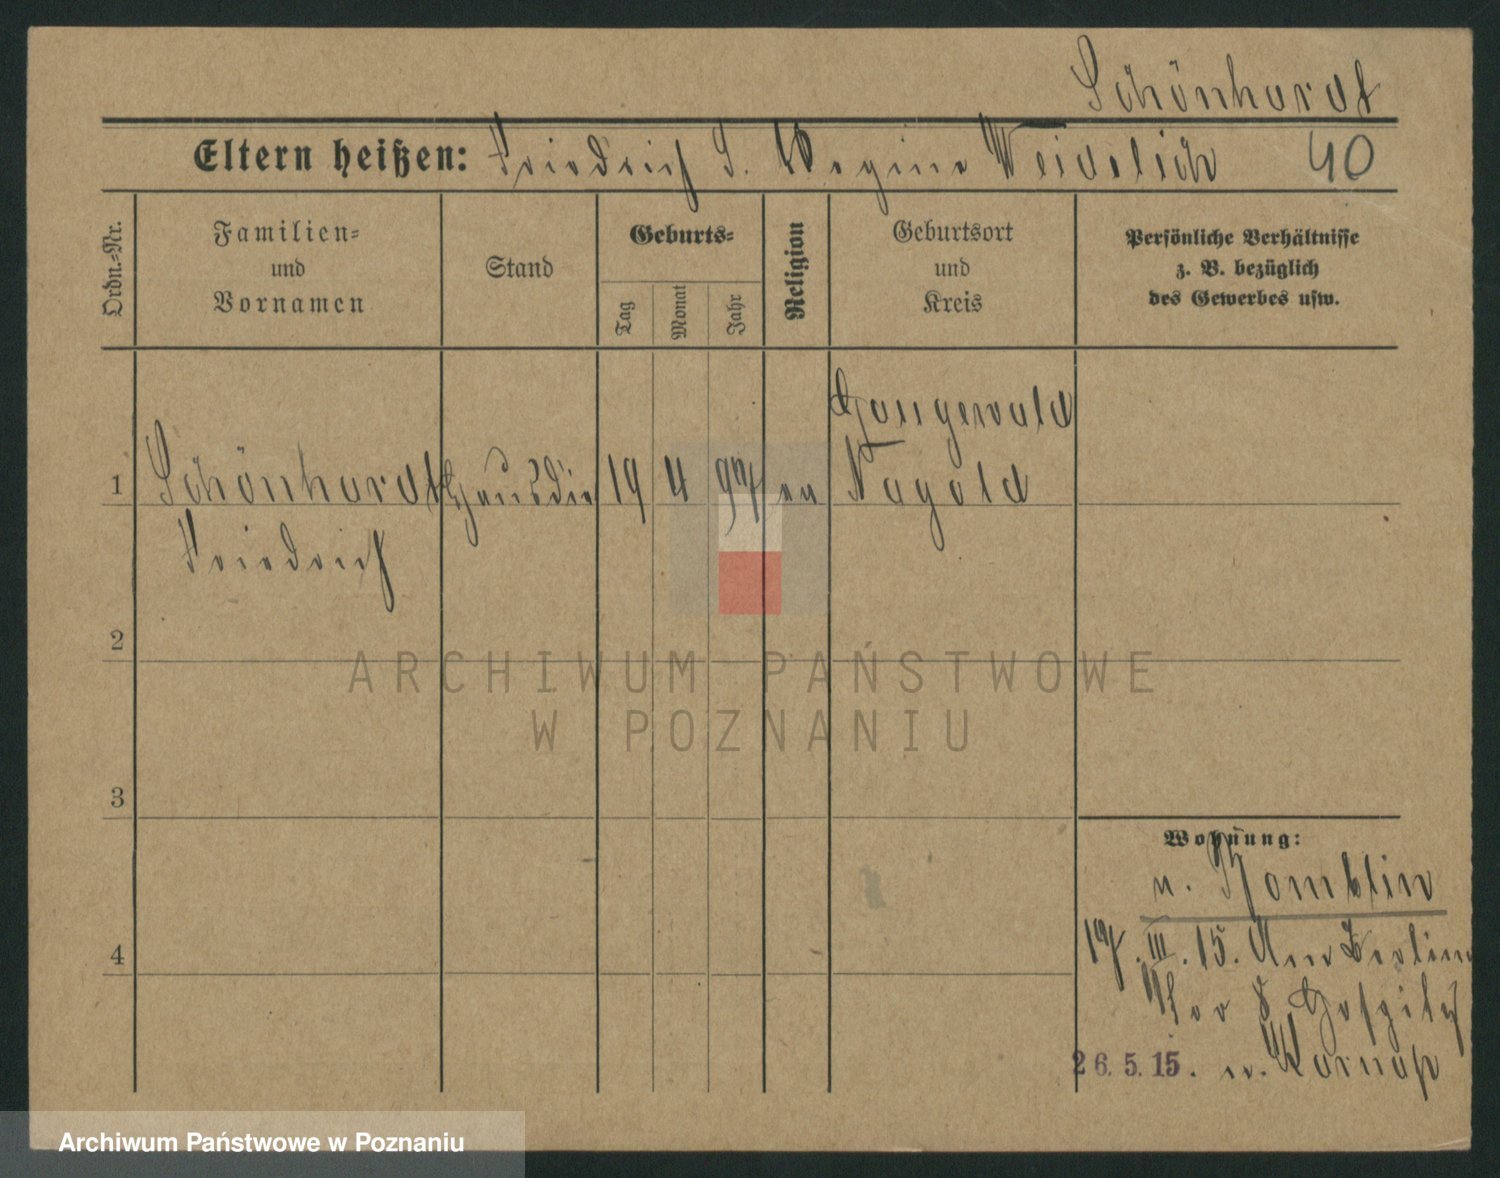 Schönhardt
Eltern heißen: Friedrich S. Regine Weidelich 40
Ordn.-Nr.
Familien-
und
Vornamen
Stand
Geburts-
Tag
Monat
Jahr
Religion
Geburtsort
und
Kreis
Persönliche Verhältnisse
z. B. bezüglich
des Gewerbes usw.
1 Schönhardt Hausdie 19 4 97 ev Nagold
Friedrich
2
3
4
Wohnung:
n.
17. III. 15. Am Berliner
Tor 8 Hospitz
26.5.15. n.
ARCHIWUM PAŃSTWOWE
W POZNANIU
Archiwum Państwowe w Poznaniu